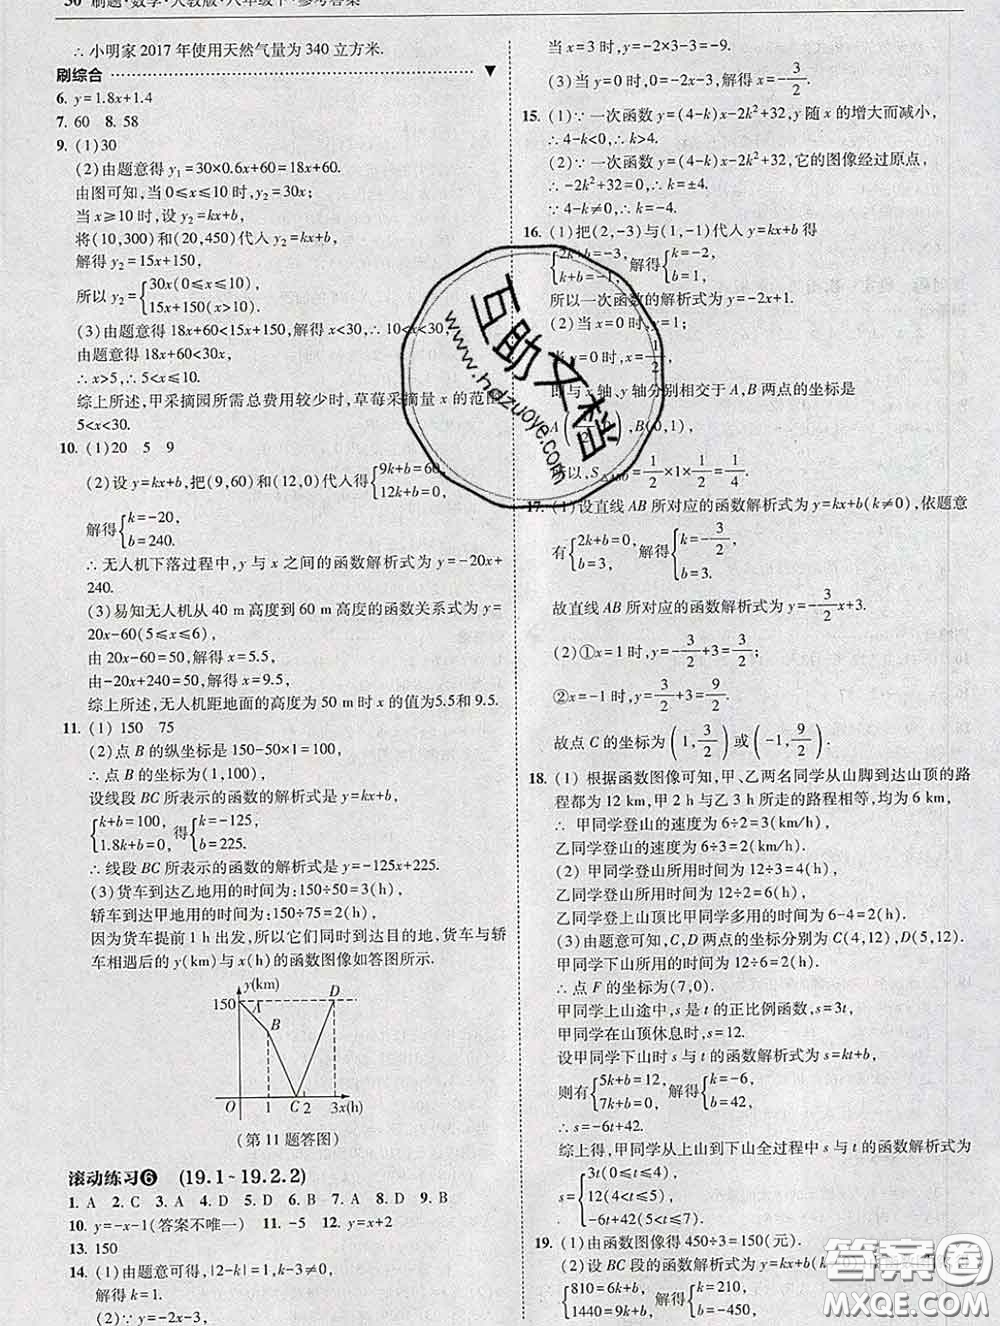 ∴ 小明家 2017 年使用天然气量为 340 立方米.
刷综合
6. y=1.8x+1.4
7. 60 8. 58
9. (1)30
(2)由题意得 y₁=30×0.6x+60=18x+60.
由图可知,当 0⩽x⩽10 时,y₂=30x;
当 x⩾10 时,设 y₂=kx+b,
将(10,300)和(20,450)代入 y₂=kx+b,
解得 y₂=15x+150,
所以 y₂={30x(0⩽x⩽10),
15x+150(x>10).
(3)由题意得 18x+60<15x+150,解得 x<30,∴10<x<30,
由题意得 18x+60<30x,
∴x>5,∴5<x⩽10.
综上所述,甲采摘园所需总费用较少时,草莓采摘量 x 的范围
5<x<30.
10. (1)20 5 9
(2)设 y=kx+b,把(9,60)和(12,0)代入得{9k+b=60,
12k+b=0,
解得{k=-20,
b=240.
∴无人机下落过程中,y 与 x 之间的函数解析式为 y=-20x+
240.
(3)易知无人机从 40 m 高度到 60 m 高度的函数关系式为 y=
20x-60(5⩽x⩽6),
由 20x-60=50,解得 x=5.5,
由-20x+240=50,解得 x=9.5,
综上所述,无人机距地面的高度为 50 m 时 x 的值为5.5和 9.5.
11. (1) 150 75
(2)点 B 的纵坐标是 150-50×1=100,
∴点 B 的坐标为(1,100),
设线段 BC 所表示的函数的解析式是 y=kx+b,
{k+b=100, 得{k=-125,
1.8k+b=0, b=225.
∴线段 BC 所表示的函数的解析式是 y=-125x+225.
(3)货车到达乙地用的时间为:150÷50=3(h),
轿车到达甲地用的时间为:150÷75=2(h),
因为货车提前 1 h 出发,所以它们同时到达目的地,货车与轿
车相遇后的 y(km)与 x(h)的函数图像如答图所示.
y(km)
150 A D
B
O 1 C 2 3x(h)
(第 11 题答图)
滚动练习❻ (19.1~19.2.2)
1. A 2. C 3. A 4. D 5. D 6. B 7. D 8. D 9. B
10. y=-x-1(答案不唯一) 11. -5 12. y=x+2
13. 150
14. (1)由题意可得,|2-k|=1,k-3≠0,
解得 k=1.
当 x=3 时,y=-2×3-3=-9.
(3)当 y=0 时,0=-2x-3,解得 x=-3/2.
15. (1)∵一次函数 y=(4-k)x-2k²+32,y 随 x 的增大而减小,
∴4-k<0,∴k>4.
(2)∵一次函数 y=(4-k)x-2k²+32,它的图像经过原点,
∴-2k²+32=0,∴k=±4.
∵4-k≠0,∴k=-4.
16. (1)把(2,-3)与(1,-1)代入 y=kx+b 得
{2k+b=-3, 解得{k=-2,
k+b=-1, b=1,
所以一次函数的解析式为 y=-2x+1.
(2)当 x=0 时,y=1;
当 y=0 时,x=1/2,
即与 x 轴、y 轴分别相交于 A,B 两点的坐标是
A ,B(0,1),
所以,S =1/2×1×1/2=1/4.
17. (1)设直线 AB 所对应的函数解析式为 y=kx+b(k≠0),依题意
有{2k+b=0, 解得{k=-3/2,
b=3, b=3.
故直线 AB 所对应的函数解析式为 y=-3/2x+3.
(2)①x=1 时,y=-3/2+3=3/2;
②x=-1 时,y=3/2+3=9/2.
故点 C 的坐标为(1,3/2)或(-1,9/2).
18. (1) 根据函数图像可知,甲、乙两名同学从山脚到达山顶的路
程都为 12 km,甲 2 h 与乙 3 h 所走的路程相等,均为 6 km,
∴ 甲同学登山的速度为 6÷2=3(km/h),
乙同学登山的速度为 6÷3=2(km/h).
(2) 甲同学登山所用时间为 12÷3=4(h),
乙同学登山所用时间为 12÷2=6(h),
乙同学登上山顶比甲同学多用的时间为 6-4=2(h).
(3)由题意可知,C,D 两点的坐标分别为 C(4,12),D(5,12).
甲同学下山所用的时间为 12÷6=2(h),
∴点 F 的坐标为(7,0).
甲同学上山途中,s 是 t 的正比例函数,s=3t,
甲同学在山顶休息时,s=12.
设甲同学下山时 s 与 t 的函数解析式为 s=kt+b,
则有{5k+b=12, 解得{k=-6,
7k+b=0, b=42.
∴s=-6t+42.
综上得,甲同学从上山到下山全过程中 s 与 t 的函数解析式为
s={3t(0⩽t⩽4),
12(4<t⩽5),
-6t+42(5<t⩽7).
19. (1)由函数图像得 450÷3=150(元).
(2)设 BC 段的函数解析式为 y=kx+b
{810=6k+b, 解得{k=210,
1440=9k+b, b=-450,
互助文档
www.hdzuoye.com
答案圈
MXQE.COM